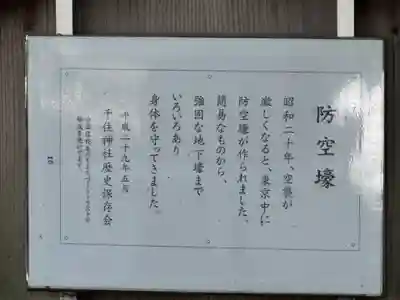 防空壕
昭和二十年、空襲が
激しくなると、東京中に
防空壕が作られました。
簡易なものから、
強固な地下壕まで
いろいろあり
身体を守ってきました。
平成二十九年五月
千住神社歴史保存会